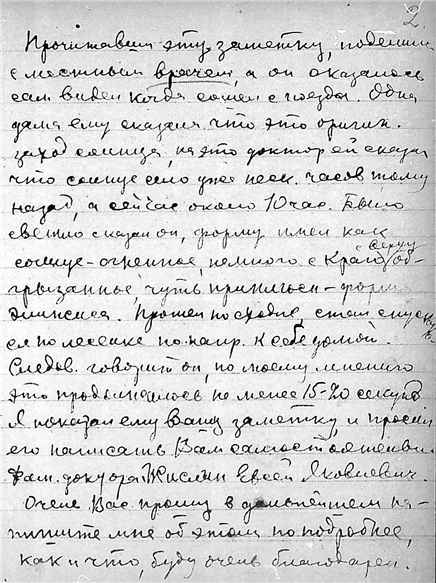 2.
Прочитавши эту заметку, поделился
с местным врачем, а он оказалось
сам видел когда сошел с поезда. Одна
дама ему сказала что это оригин.
заход солнца, на это доктор ей сказал
что солнце село уже неск. часов тому
назад, а сейчас около 10 час. Было
светло сказал он, форму имел как
солнце - огненное, немного с краю об-
сверху
грызанное, чуть - форма
эллипсиса. Прошел по сходне, стал спус
по лесенке по напр. к себе домой.
Следов. говорит он, по моему мнению
это продолжалось не менее 15-20 секунд
Я показал ему Вашу заметку и просил
его написать Вам самостоятельно
Фам. доктора Жислин Евсей Яковлевич.
Очень Вас прошу в дальнейшем на-
пишите мне об этом по подробнее,
как и что, буду очень благодарен.